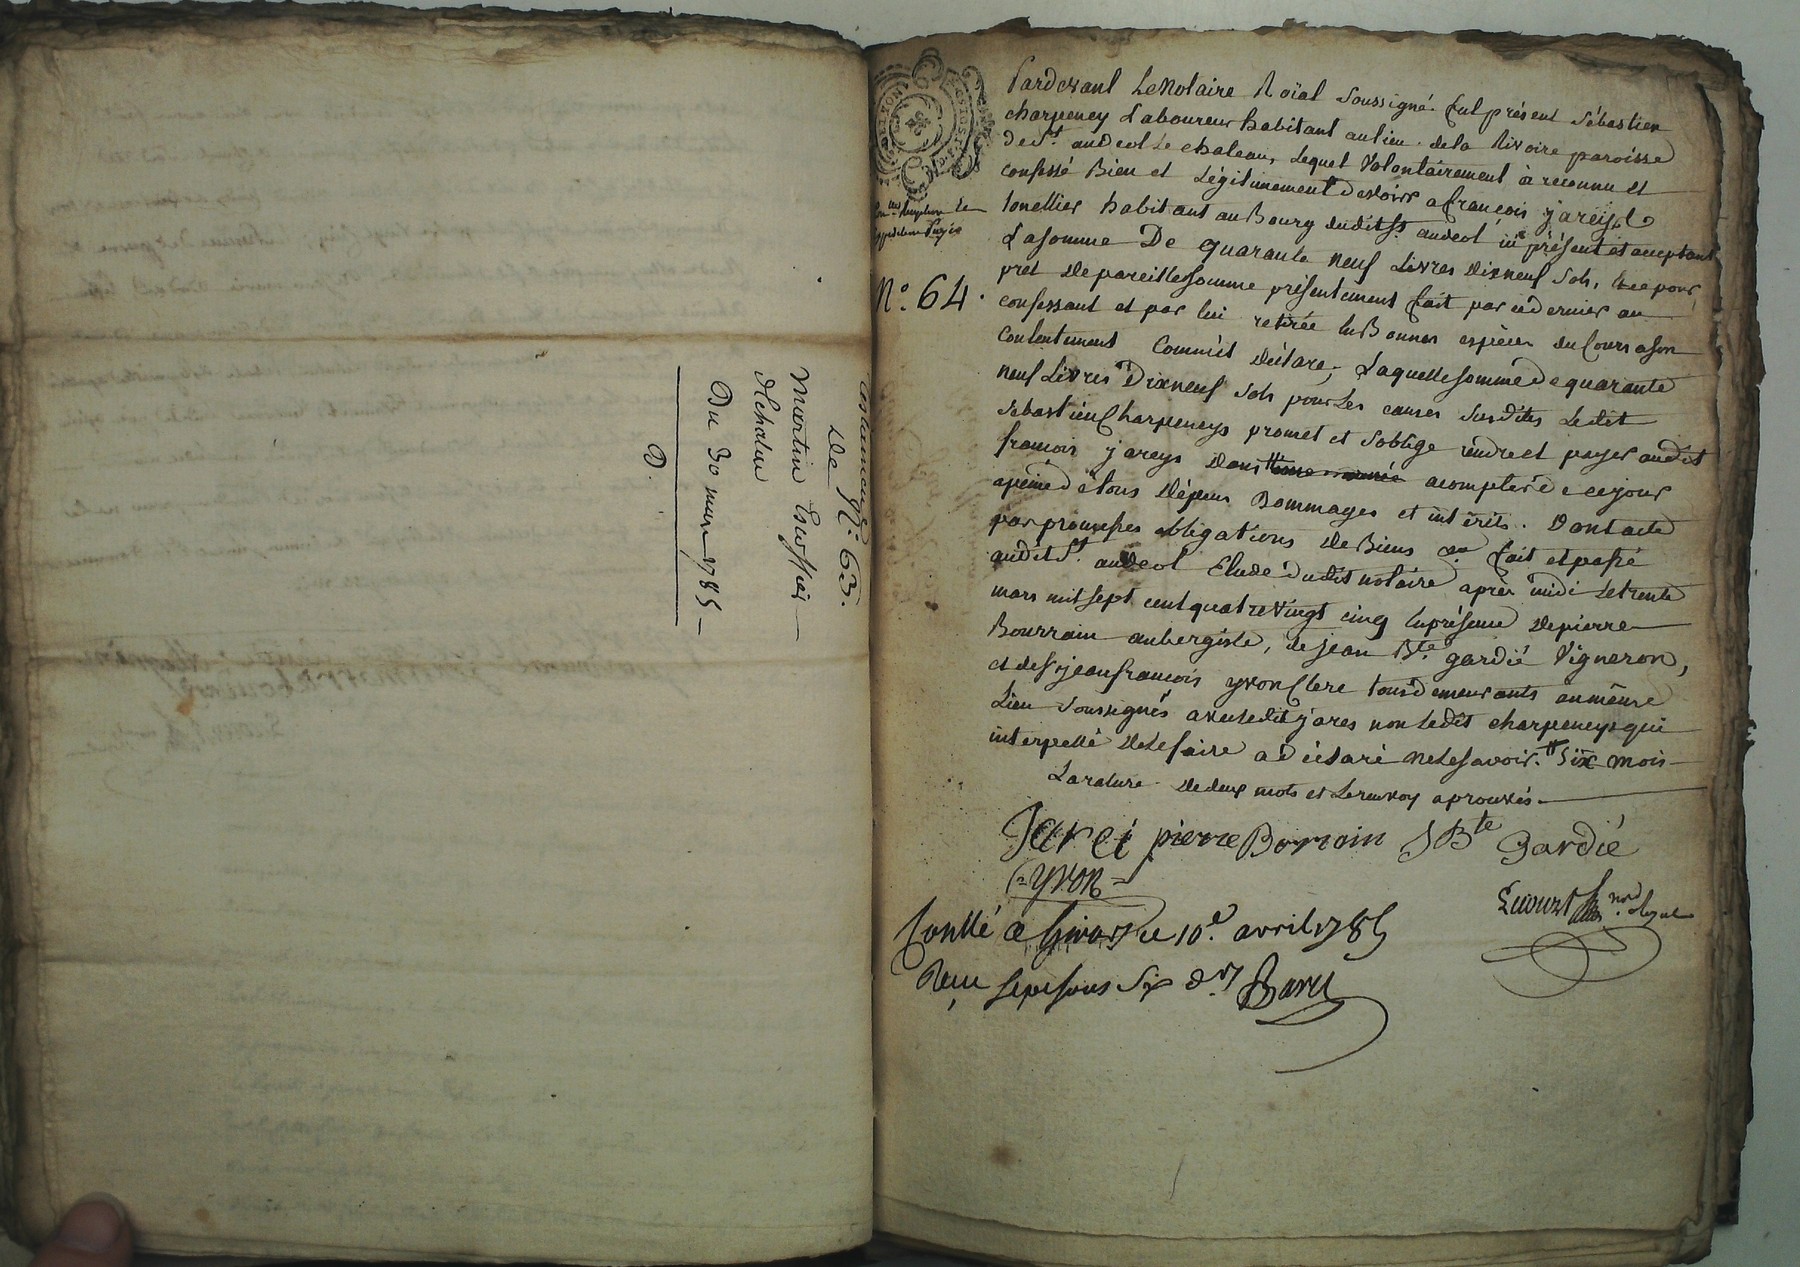 testament N.° 63.
De
Martin
Du 30 mars 1785
D.
N.° 64.
Pardevant Le Notaire Roïal Soussigné. fut présent Sébastien
charpeney Laboureur habitant au lieu de la Rivoire paroisse
de St. andeol Le chateau, Lequel Volontairement à reconnu et
confessé Bien et Légitimement devoir a françois jareys
tonellier habitant au Bourg dudit St. andeol ici présent et acceptant
La somme De quarante neuf Livres dixneuf sols, pour
pret de pareille somme présentement fait par ce dernier au
confessant et par lui retirée en Bonnes espèces du Cours a son
contentement Comm'il déclare, Laquelle somme de quarante
neuf Livres Dixneuf sols pour Les causes susdites Ledit
Sébastien Charpeneys promet et s'oblige rendre et payer audit
françois jareys dans # une année acompter de ce jour
apeine de tous dépens Dommages et intérêts. Dont acte
par promesses obligations de Biens &a fait et passé
audit St. andeol Etude dudit notaire après midi Le trente
mars mil sept cent quatre Vingt cinq en présence de pierre
Bourrain aubergiste, de jean Bte. gardié Vigneron,
et de Sr. jean francois yvon Clerc tous demeurants au même
Lieu Soussignés avec Ledit jares non Ledit charpeneys qui
interpellé de Le faire a déclaré ne Le savoir. # Six mois
La rature de deux mots et Le renvoy aprouvés.
Jarei pierre Borrain J Bte Gardié
yvon
Conllé a Givors le 10e. avril 1785
Reçu sept sous Six drs